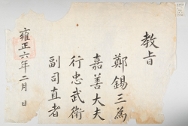 敎旨
鄭錫三爲
嘉善大夫
行忠武衛
副司直者
雍正六年二月 日